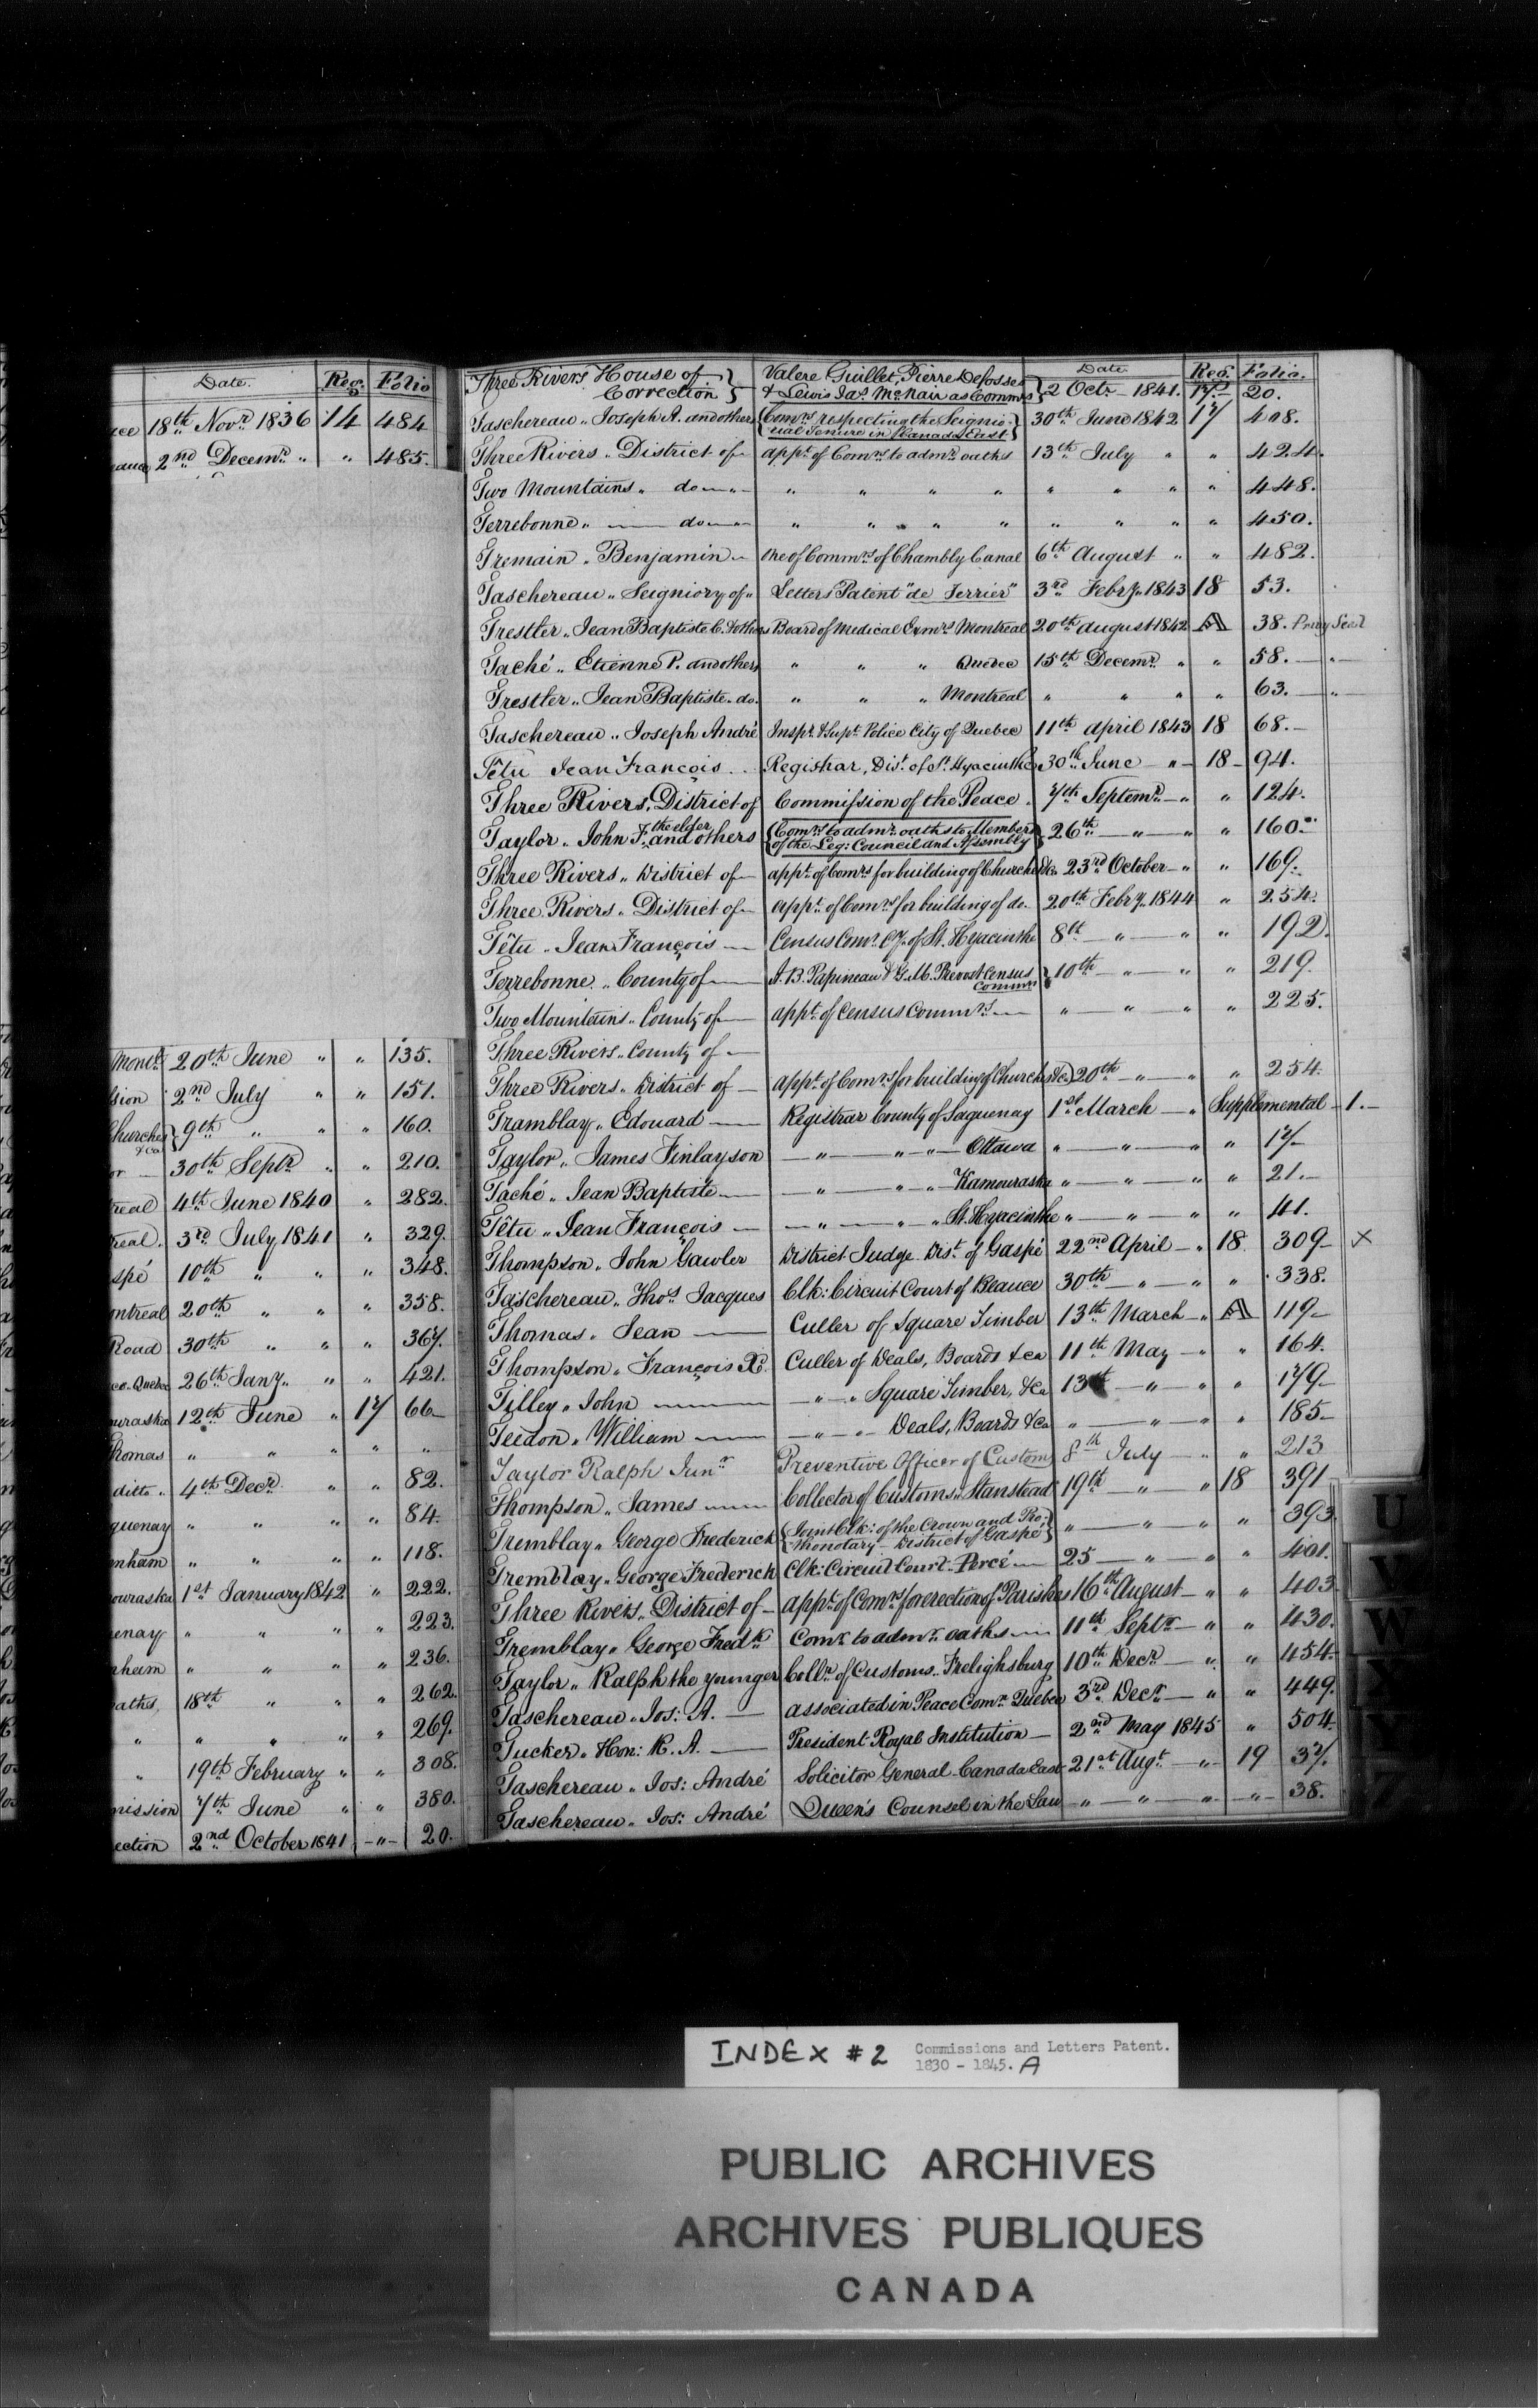 Date. Reg. Folio
18th Novr 1836 14 484
2nd Decemr " " 485.
Montl 20th June " " 135.
2nd July " " 151.
Churches &ca } 9th " " " 160.
30th Septr " " 210.
4th June 1840 " 282.
3rd July 1841 " 329.
10th " " " 348.
20th " " " 358.
Road 30th " " " 367.
26th Jany. " " 421.
12th June " 17 66
" " " "
ditto " 4th Decr " " 82.
" " " " 84.
" " " " 118.
1st January 1842 " 222.
" " " " 223.
" " " " 236.
18th " " " 262.
" " " " 269.
" 19th February " " 308.
7th June " " 380.
2nd October 1841 " 20.
Date. Reg. Folio.
Three Rivers House of Correction } Valere Guillet, Pierre Defosses & Lewis Jas. McNair as Commrs } 2 Octr 1841. 17. 20.
Taschereau " Joseph A. and others { Comrs respecting the Seigniorial Tenure in Canada East } 30th June 1842 17 408.
Three Rivers " District of appt. of Comrs to admr oaths 13th July " " 424.
Two Mountains " do " " " " " " " " 448.
Terrebonne " do " " " " " " " " 450.
Tremain " Benjamin one of Commrs of Chambly Canal 6th August " " 482.
Taschereau " Seigniory of " Letters Patent "de Terrier" 3rd Febry. 1843 18 53.
Trestler " Jean Baptiste C. & others Board of Medical Exmrs Montreal 20th August 1842 A 38. Privy Seal
Taché " Etienne P. and others " " " Quebec 15th Decemr " " 58. "
Trestler " Jean Baptiste " do. " " " Montreal " " " " 63. "
Taschereau " Joseph André Inspr & Supt Police City of Quebec 11th April 1843 18 68.
Têtu Jean François Registrar, Dist. of St. Hyacinthe 30th June " 18 94.
Three Rivers, District of Commission of the Peace. 7th Septemr " " 124.
Taylor " John F. the elder and others { Comrs to admr oaths to Members of the Leg: Council and Assembly } 26th " " " 160.
Three Rivers " District of appt. of Comrs for building of Churches &c. 23rd October " " 169.
Three Rivers " District of appt. of Comrs for building of do. 20th Febry. 1844 " 254.
Têtu " Jean François Census Comr Cy. of St. Hyacinthe 8th " " " 192.
Terrebonne " County of A. B. Papineau & G. M. Prevost Census Commrs } 10th " " " 219.
Two Mountains " County of appt. of Census Commrs " " " " 225.
Three Rivers " County of
Three Rivers " District of appt. of Comrs for building of Churches &c) 20th " " " 254.
Tramblay " Edouard Registrar County of Saguenay 1st March " Supplemental 1.
Taylor " James Finlayson " " " Ottawa " " " " 17
Taché " Jean Baptiste " " " Kamouraska " " " " 21.
Têtu " Jean François " " " St. Hyacinthe " " " " 41.
Thompson " John Gawler District Judge Dist. of Gaspé 22nd April " 18 309 X
Taschereau " Thos Jacques Clk: Circuit Court of Beauce 30th " " " 338.
Thomas " Jean Culler of Square Timber 13th March " A 119
Thompson " François X. Culler of Deals, Boards &ca 11th May " " 164.
Tilley " John " " Square Timber, &ca 13th " " " 179
Teedon " William " " Deals, Boards &ca " " " " 185
Taylor Ralph Junr Preventive Officer of Customs 8th July " " 213
Thompson " James Collector of Customs " Stanstead 19th " " 18 391
Tremblay " George Frederick { Joint Clk: of the Crown and Prothonotary District of Gaspé } " " " " 393
Tremblay " George Frederick Clk: Circuit Court Percé 25 " " " 401.
Three Rivers " District of appt. of Comrs for erection of Parishes 16th August " " 403
Tremblay " George Fredk Comr to admr oaths 11th Septr " " 430.
Taylor " Ralph the younger Collr of Customs Frelighsburg 10th Decr " " 454.
Taschereau " Jos: A. associated in Peace Comn Quebec 3rd Decr " " 449.
Tucker " Hon: R. A. President Royal Institution 2nd May 1845 " 504
Taschereau " Jos: André Solicitor General Canada East 21st Augt " 19 37.
Taschereau " Jos: André Queen's Counsel in the Law " " " " 38.
U
V
W
X
Y
INDEX # 2 Commissions and Letters Patent.
1830 - 1845. A
PUBLIC ARCHIVES
ARCHIVES PUBLIQUES
CANADA